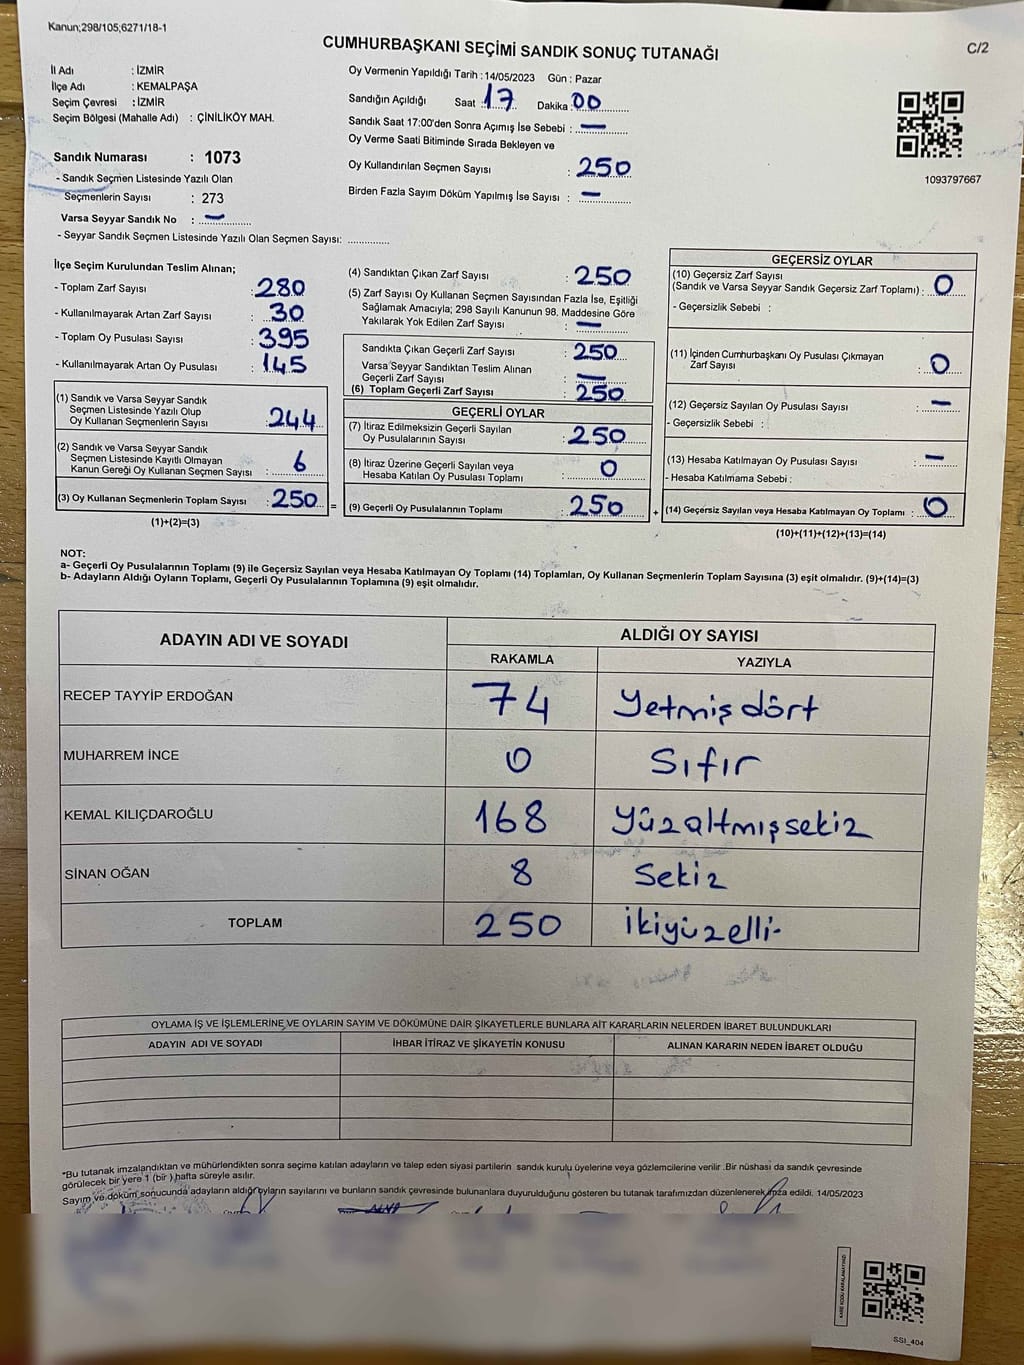 Kanun;298/105;6271/18-1
CUMHURBAŞKANI SEÇİMİ SANDIK SONUÇ TUTANAĞI
C/2
İl Adı : İZMİR
İlçe Adı : KEMALPAŞA
Seçim Çevresi : İZMİR
Seçim Bölgesi (Mahalle Adı) : ÇİNİLİKÖY MAH.
Sandık Numarası : 1073
- Sandık Seçmen Listesinde Yazılı Olan
Seçmenlerin Sayısı : 273
Varsa Seyyar Sandık No : —
- Seyyar Sandık Seçmen Listesinde Yazılı Olan Seçmen Sayısı: ..............
Oy Vermenin Yapıldığı Tarih : 14/05/2023 Gün : Pazar
Sandığın Açıldığı Saat : 17 Dakika : 00
Sandık Saat 17:00'den Sonra Açımış İse Sebebi : —
Oy Verme Saati Bitiminde Sırada Bekleyen ve
Oy Kullandırılan Seçmen Sayısı : 250
Birden Fazla Sayım Döküm Yapılmış İse Sayısı : —
1093797667
İlçe Seçim Kurulundan Teslim Alınan;
- Toplam Zarf Sayısı : 280
- Kullanılmayarak Artan Zarf Sayısı : 30
- Toplam Oy Pusulası Sayısı : 395
- Kullanılmayarak Artan Oy Pusulası : 145
(1) Sandık ve Varsa Seyyar Sandık
Seçmen Listesinde Yazılı Olup
Oy Kullanan Seçmenlerin Sayısı : 244
(2) Sandık ve Varsa Seyyar Sandık
Seçmen Listesinde Kayıtlı Olmayan
Kanun Gereği Oy Kullanan Seçmen Sayısı : 6
(3) Oy Kullanan Seçmenlerin Toplam Sayısı : 250 =
(1)+(2)=(3)
(4) Sandıktan Çıkan Zarf Sayısı : 250
(5) Zarf Sayısı Oy Kullanan Seçmen Sayısından Fazla İse, Eşitliği
Sağlamak Amacıyla; 298 Sayılı Kanunun 98. Maddesine Göre
Yakılarak Yok Edilen Zarf Sayısı : —
Sandıkta Çıkan Geçerli Zarf Sayısı : 250
Varsa Seyyar Sandıktan Teslim Alınan
Geçerli Zarf Sayısı : —
(6) Toplam Geçerli Zarf Sayısı : 250
GEÇERLİ OYLAR
(7) İtiraz Edilmeksizin Geçerli Sayılan
Oy Pusulalarının Sayısı : 250
(8) İtiraz Üzerine Geçerli Sayılan veya
Hesaba Katılan Oy Pusulası Toplamı : 0
(9) Geçerli Oy Pusulalarının Toplamı : 250 +
GEÇERSİZ OYLAR
(10) Geçersiz Zarf Sayısı
(Sandık ve Varsa Seyyar Sandık Geçersiz Zarf Toplamı) : 0
- Geçersizlik Sebebi :
(11) İçinden Cumhurbaşkanı Oy Pusulası Çıkmayan
Zarf Sayısı : 0
(12) Geçersiz Sayılan Oy Pusulası Sayısı : —
- Geçersizlik Sebebi :
(13) Hesaba Katılmayan Oy Pusulası Sayısı : —
- Hesaba Katılmama Sebebi :
(14) Geçersiz Sayılan veya Hesaba Katılmayan Oy Toplamı : 0
(10)+(11)+(12)+(13)=(14)
NOT:
a- Geçerli Oy Pusulalarının Toplamı (9) ile Geçersiz Sayılan veya Hesaba Katılmayan Oy Toplamı (14) Toplamları, Oy Kullanan Seçmenlerin Toplam Sayısına (3) eşit olmalıdır. (9)+(14)=(3)
b- Adayların Aldığı Oyların Toplamı, Geçerli Oy Pusulalarının Toplamına (9) eşit olmalıdır.
ADAYIN ADI VE SOYADI ALDIĞI OY SAYISI
RAKAMLA YAZIYLA
RECEP TAYYİP ERDOĞAN 74 Yetmişdört
MUHARREM İNCE 0 Sıfır
KEMAL KILIÇDAROĞLU 168 Yüzaltmışsekiz
SİNAN OĞAN 8 Sekiz
TOPLAM 250 İkiyüzelli-
OYLAMA İŞ VE İŞLEMLERİNE VE OYLARIN SAYIM VE DÖKÜMÜNE DAİR ŞİKAYETLERLE BUNLARA AİT KARARLARIN NELERDEN İBARET BULUNDUKLARI
ADAYIN ADI VE SOYADI İHBAR İTİRAZ VE ŞİKAYETİN KONUSU ALINAN KARARIN NEDEN İBARET OLDUĞU
*Bu tutanak imzalandıktan ve mühürlendikten sonra seçime katılan adayların ve talep eden siyasi partilerin sandık kurulu üyelerine veya gözlemcilerine verilir .Bir nüshası da sandık çevresinde
görülecek bir yere 1 (bir ) hafta süreyle asılır.
Sayım ve döküm sonucunda adayların aldığı oyların sayılarını ve bunların sandık çevresinde bulunanlara duyurulduğunu gösteren bu tutanak tarafımızdan düzenlenerek imza edildi. 14/05/2023
KARE KODU KARALAMAYINIZ!
SSI_404